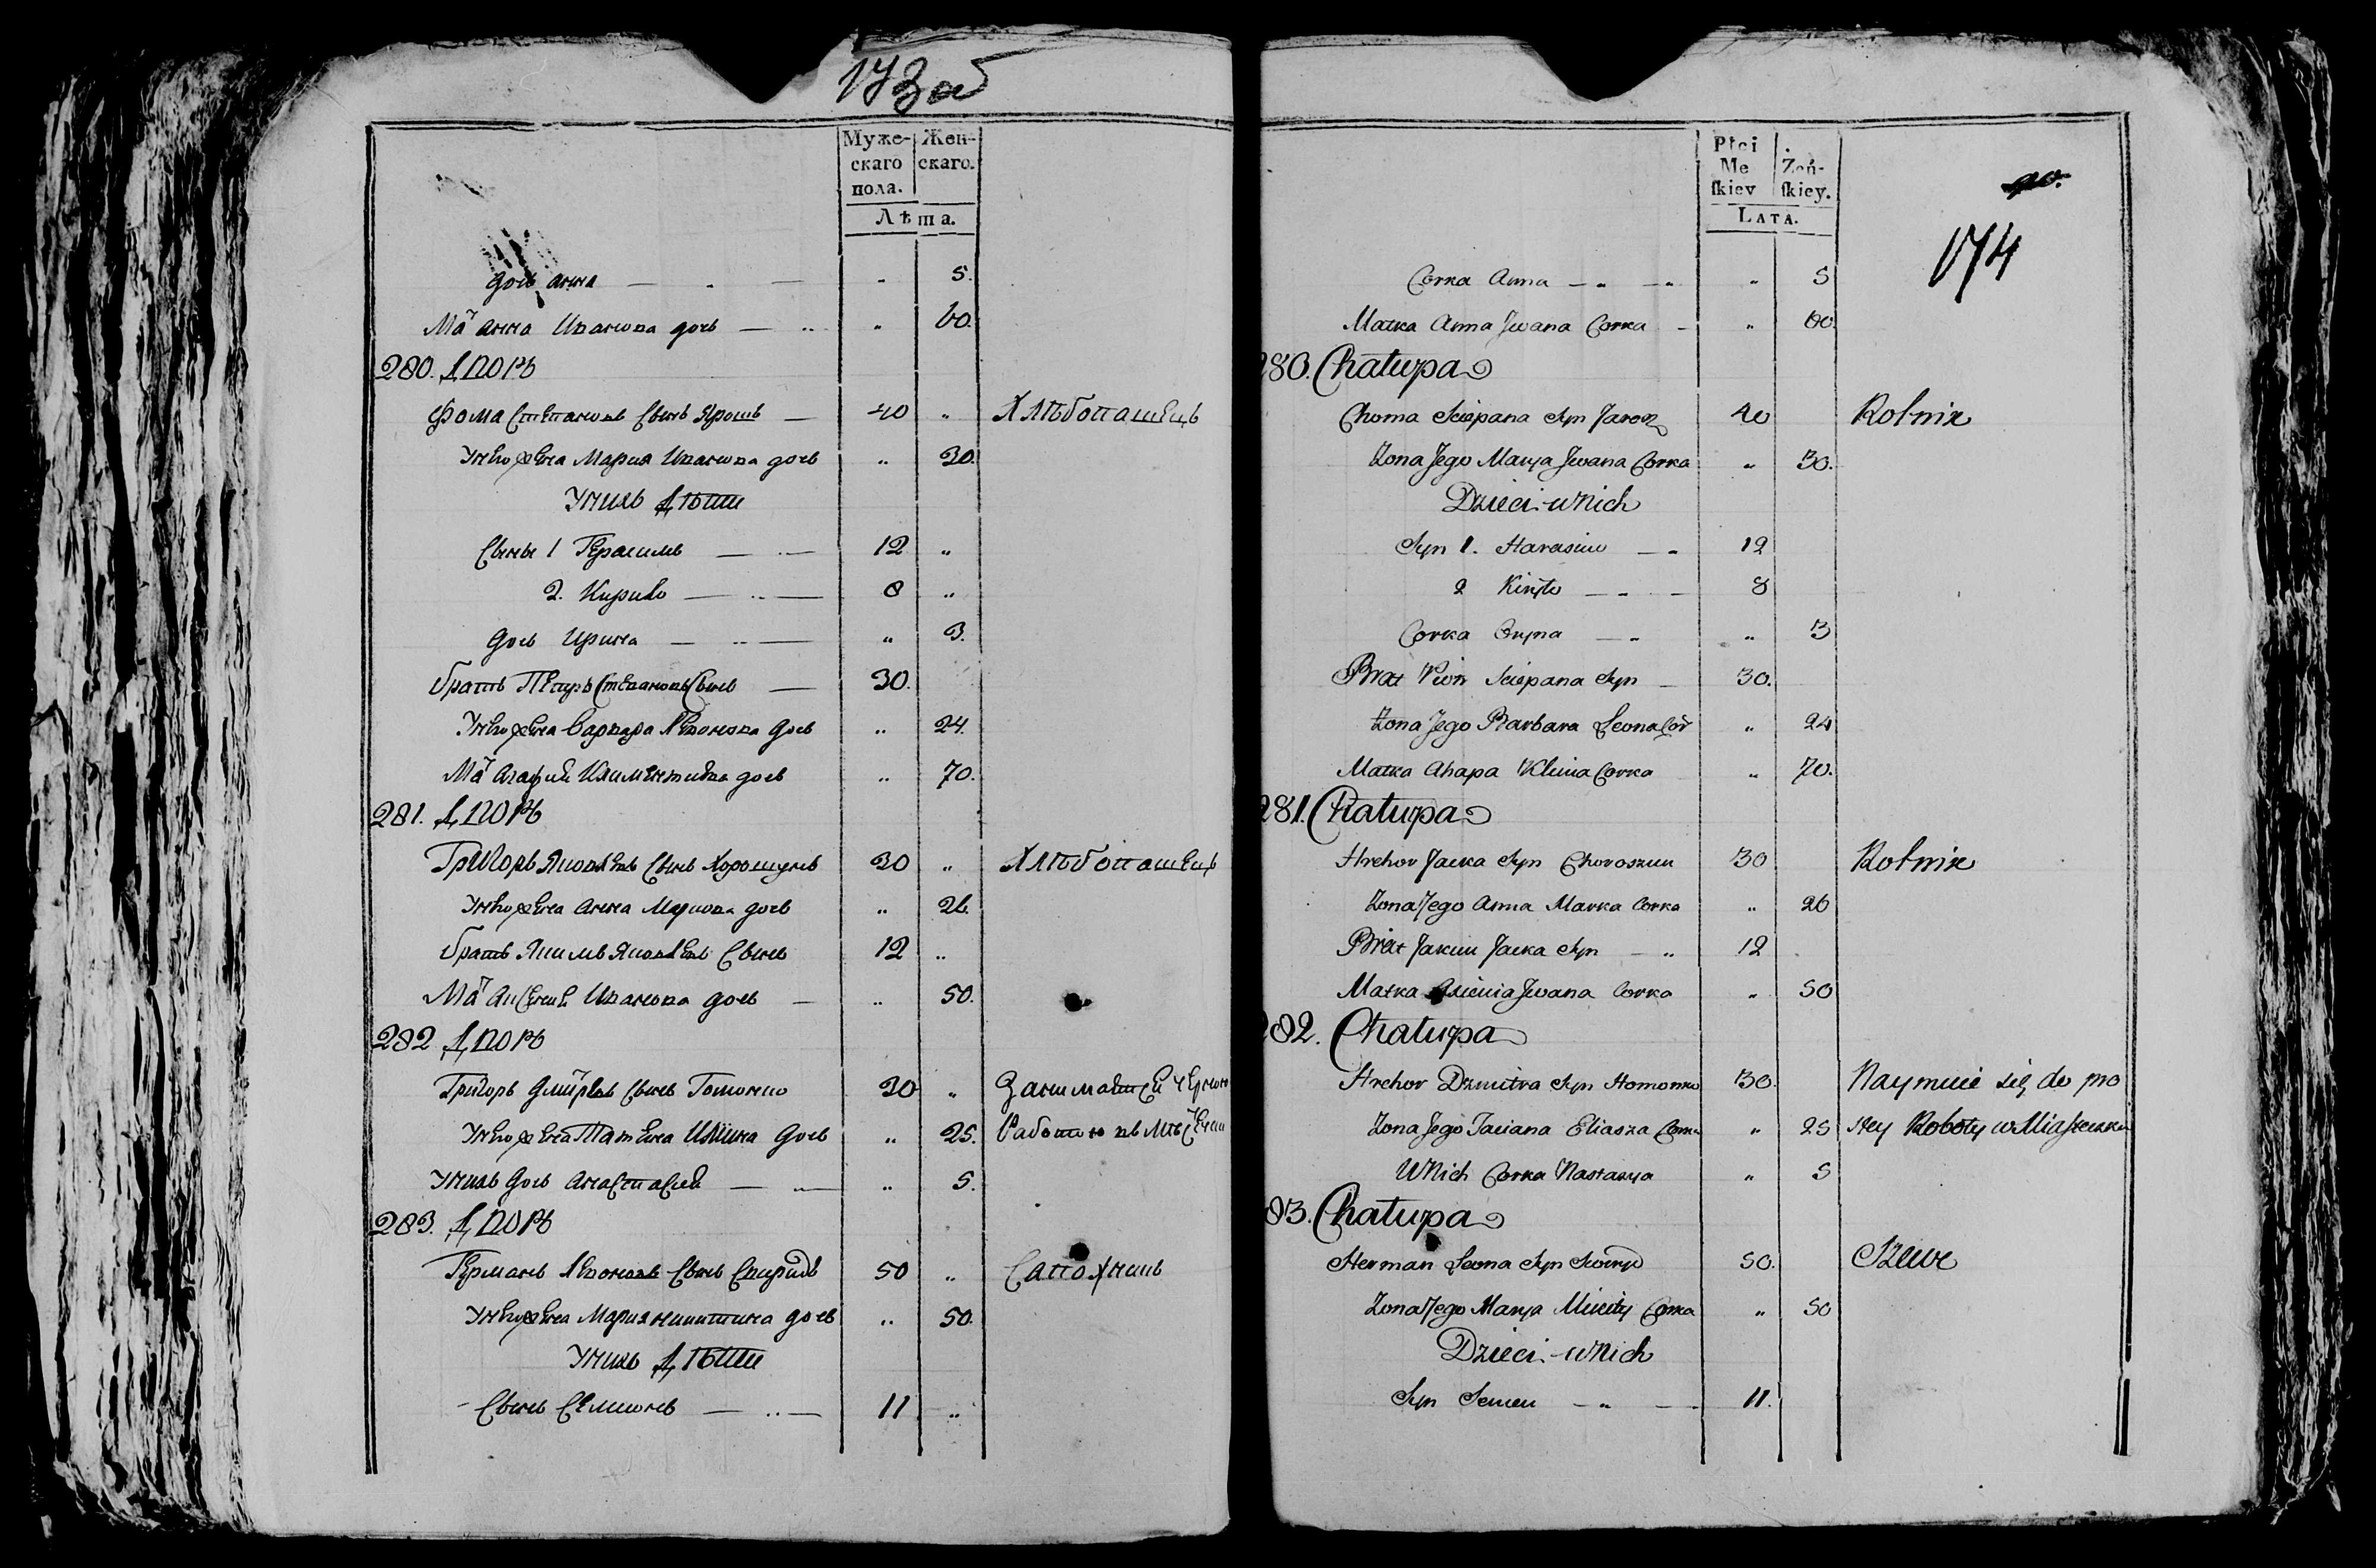 173 об
Муже-
скаго
пола.
Жен-
скаго.
Лѣта.
дочь Анна — . — " 5.
Мат Анна Иванова дочь — " " 60.
280. Дворъ
Фома Степановъ сынъ Ярошъ — 40 " Хлѣбопашецъ
У него жена Мария Иванова дочь " 30.
У нихъ Дѣти
Сыны 1 Герасимъ — 12 "
2. Кирило — 8 "
дочь Ирина — " 3.
братъ Петръ Степановъ сынъ — 30.
У него жена Варвара Левонова дочь " 24.
Мат Агафия Климентиева дочь " 70.
281. Дворъ
Григорь Яковлевъ сынъ Хорошунъ 30 " Хлѣбопашецъ
У него жена Анна Маркова дочь " 26.
братъ Якимъ Яковлевъ сынъ 12 "
Мат Аксения Иванова дочь — " 50.
282 Дворъ
Григорь Дмитревъ сынъ Гомонко 30 " Занимается черною
У него жена Татьяна Илина дочь " 25. Работою въ мѣстечки
У нихъ дочь Анастасия — " 5.
283. Дворъ
Германъ Левоновъ сынъ Свиридъ 50 " Сапожникъ
У него жена Мария Никитина дочь " 50.
У нихъ Дѣти
Сынъ Семионъ — 11 "
Płci
Me
skiey
Żeń-
skiey.
LATA.
174
Corka Anna — " — " " 5
Matka Anna Jwana Corka — " 60.
280. Chałupa
Choma Sciepana Syn Jarosz 40 Rolnik
Zona Jego Marya Jwana Corka " 30.
Dzieci w Nich
Syn 1. Harasim — " 12
2 Kiryło — " — 8
Corka Oryna — " " 3
Brat Piotr Sciepana Syn — 30.
Zona Jego Barbara Leona Cor " 24
Matka Ahapa Klima Corka " 70.
281. Chałupa
Hrehor Jacka Syn Choroszun 30 Rolnik
Zona Jego Anna Marka Corka " 26
Brat Jakim Jacka Syn — " 12
Matka Axienia Jwana Corka " 50
282. Chałupa
Hrehor Dzmitra Syn Homonko 30. Naymuie się do pro
Zona Jego Taciana Eliasza Corka " 25 stey Roboty w Miasteczku
W Nich Corka Nastazya " 5
83. Chałupa
Herman Leona Syn Swiryd 50. Szewc
Zona Jego Marya Mikity Corka " 50
Dzieci w Nich
Syn Semen — " — 11.